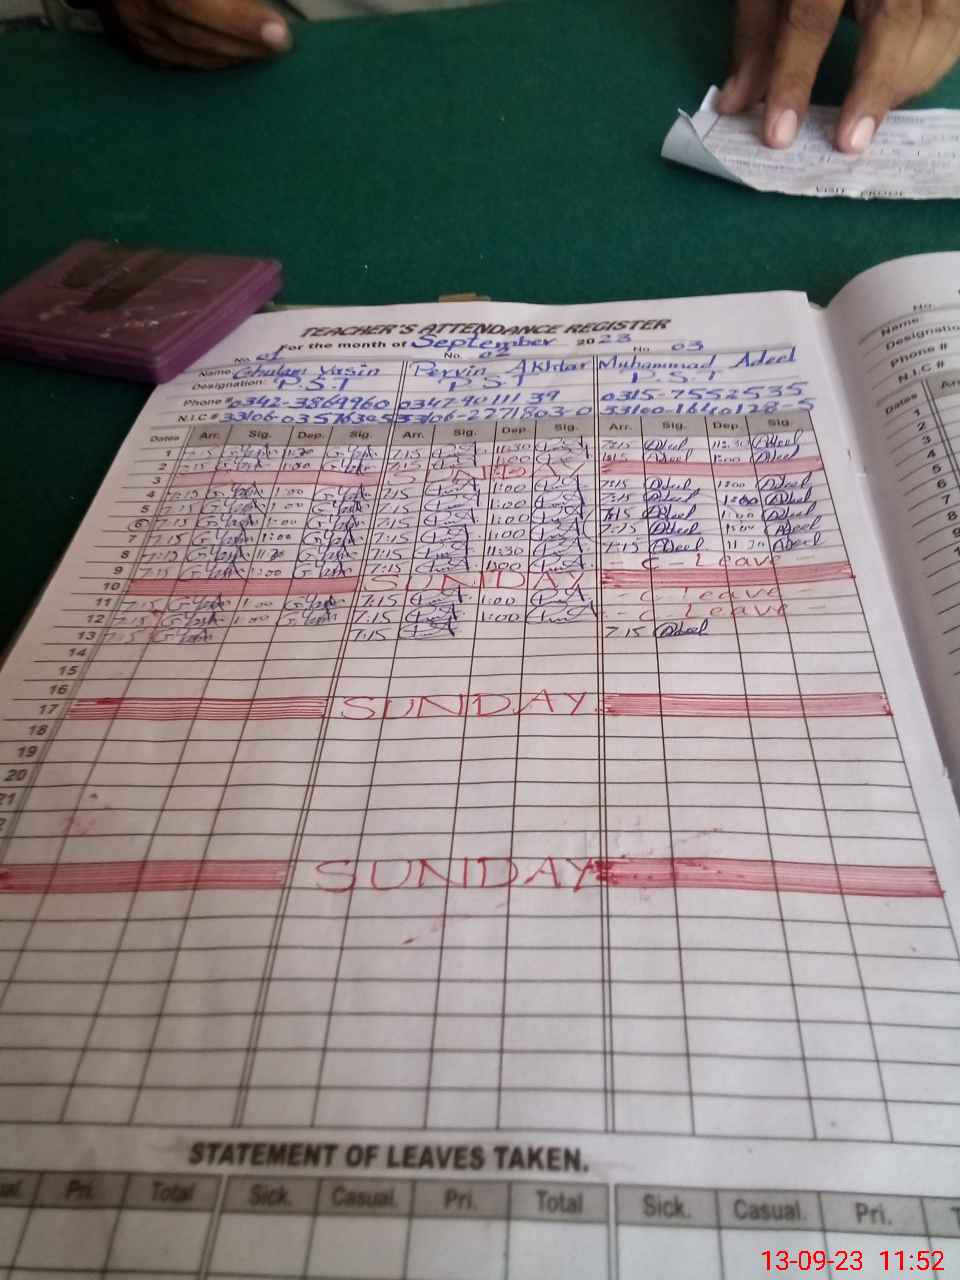 VISIT PROOF
TEACHER'S ATTENDANCE REGISTER
For the month of September 2023
No. 01 No. 02 No. 03
Name Ghulam Yasin Pervin Akhtar Muhammad Adeel
Designation: P.S.T P.S.T P.S.T
Phone # 0342-3869960 0347-9011139 0315-7552535
N.I.C #
Dates Arr. Sig. Dep. Sig. Arr. Sig. Dep. Sig. Arr. Sig. Dep. Sig.
1 7:15 1:30 7:15 11:30 7:15 Adeel 11:30 Adeel
2 7:15 1:00 7:15 1:00 Adeel 1:00 Adeel
3 SUNDAY
4 7:15 1:00 7:15 1:00 7:15 Adeel 1:00 Adeel
5 7:15 G Yasin 1:00 G Yasin 7:15 1:00 7:15 Adeel 1:00 Adeel
6 7:15 G Yasin 1:00 G Yasin 7:15 1:00 7:15 Adeel 1:00 Adeel
7 7:15 G Yasin 1:00 G Yasin 7:15 1:00 7:15 Adeel 1:00 Adeel
8 7:15 G Yasin 11:30 G Yasin 7:15 11:30 7:15 Adeel 11:30 Adeel
9 7:15 G Yasin 1:00 G Yasin 7:15 1:00 - C - Leave -
10 SUNDAY
11 7:15 G Yasin 1:00 G Yasin 7:15 1:00 - C - Leave -
12 7:15 G Yasin 1:00 G Yasin 7:15 1:00 - C - Leave -
13 7:15 G Yasin 7:15 7:15 Adeel
14
15
16
17 SUNDAY
18
19
20
21
SUNDAY
STATEMENT OF LEAVES TAKEN.
Pri. Total Sick. Casual. Pri. Total Sick. Casual. Pri.
No.
Name
Designation
Phone #
N.I.C #
Dates
1
2
3
4
5
6
7
8
9
13-09-23 11:52